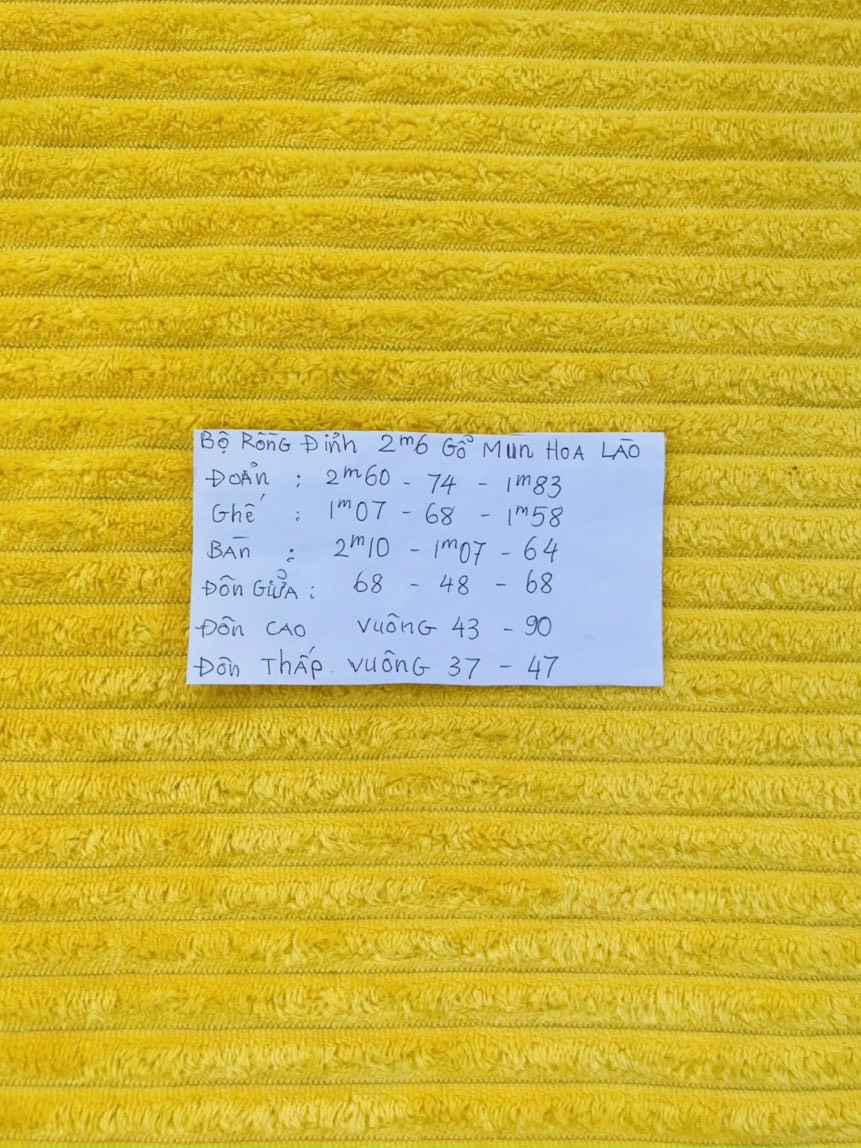 Bộ Rồng Đỉnh 2m6 Gỗ Mun Hoa Lào
Đoản : 2m60 - 74 - 1m83
Ghế : 1m07 - 68 - 1m58
Bàn : 2m10 - 1m07 - 64
Đôn Giữa : 68 - 48 - 68
Đôn cao vuông 43 - 90
Đôn Thấp. vuông 37 - 47